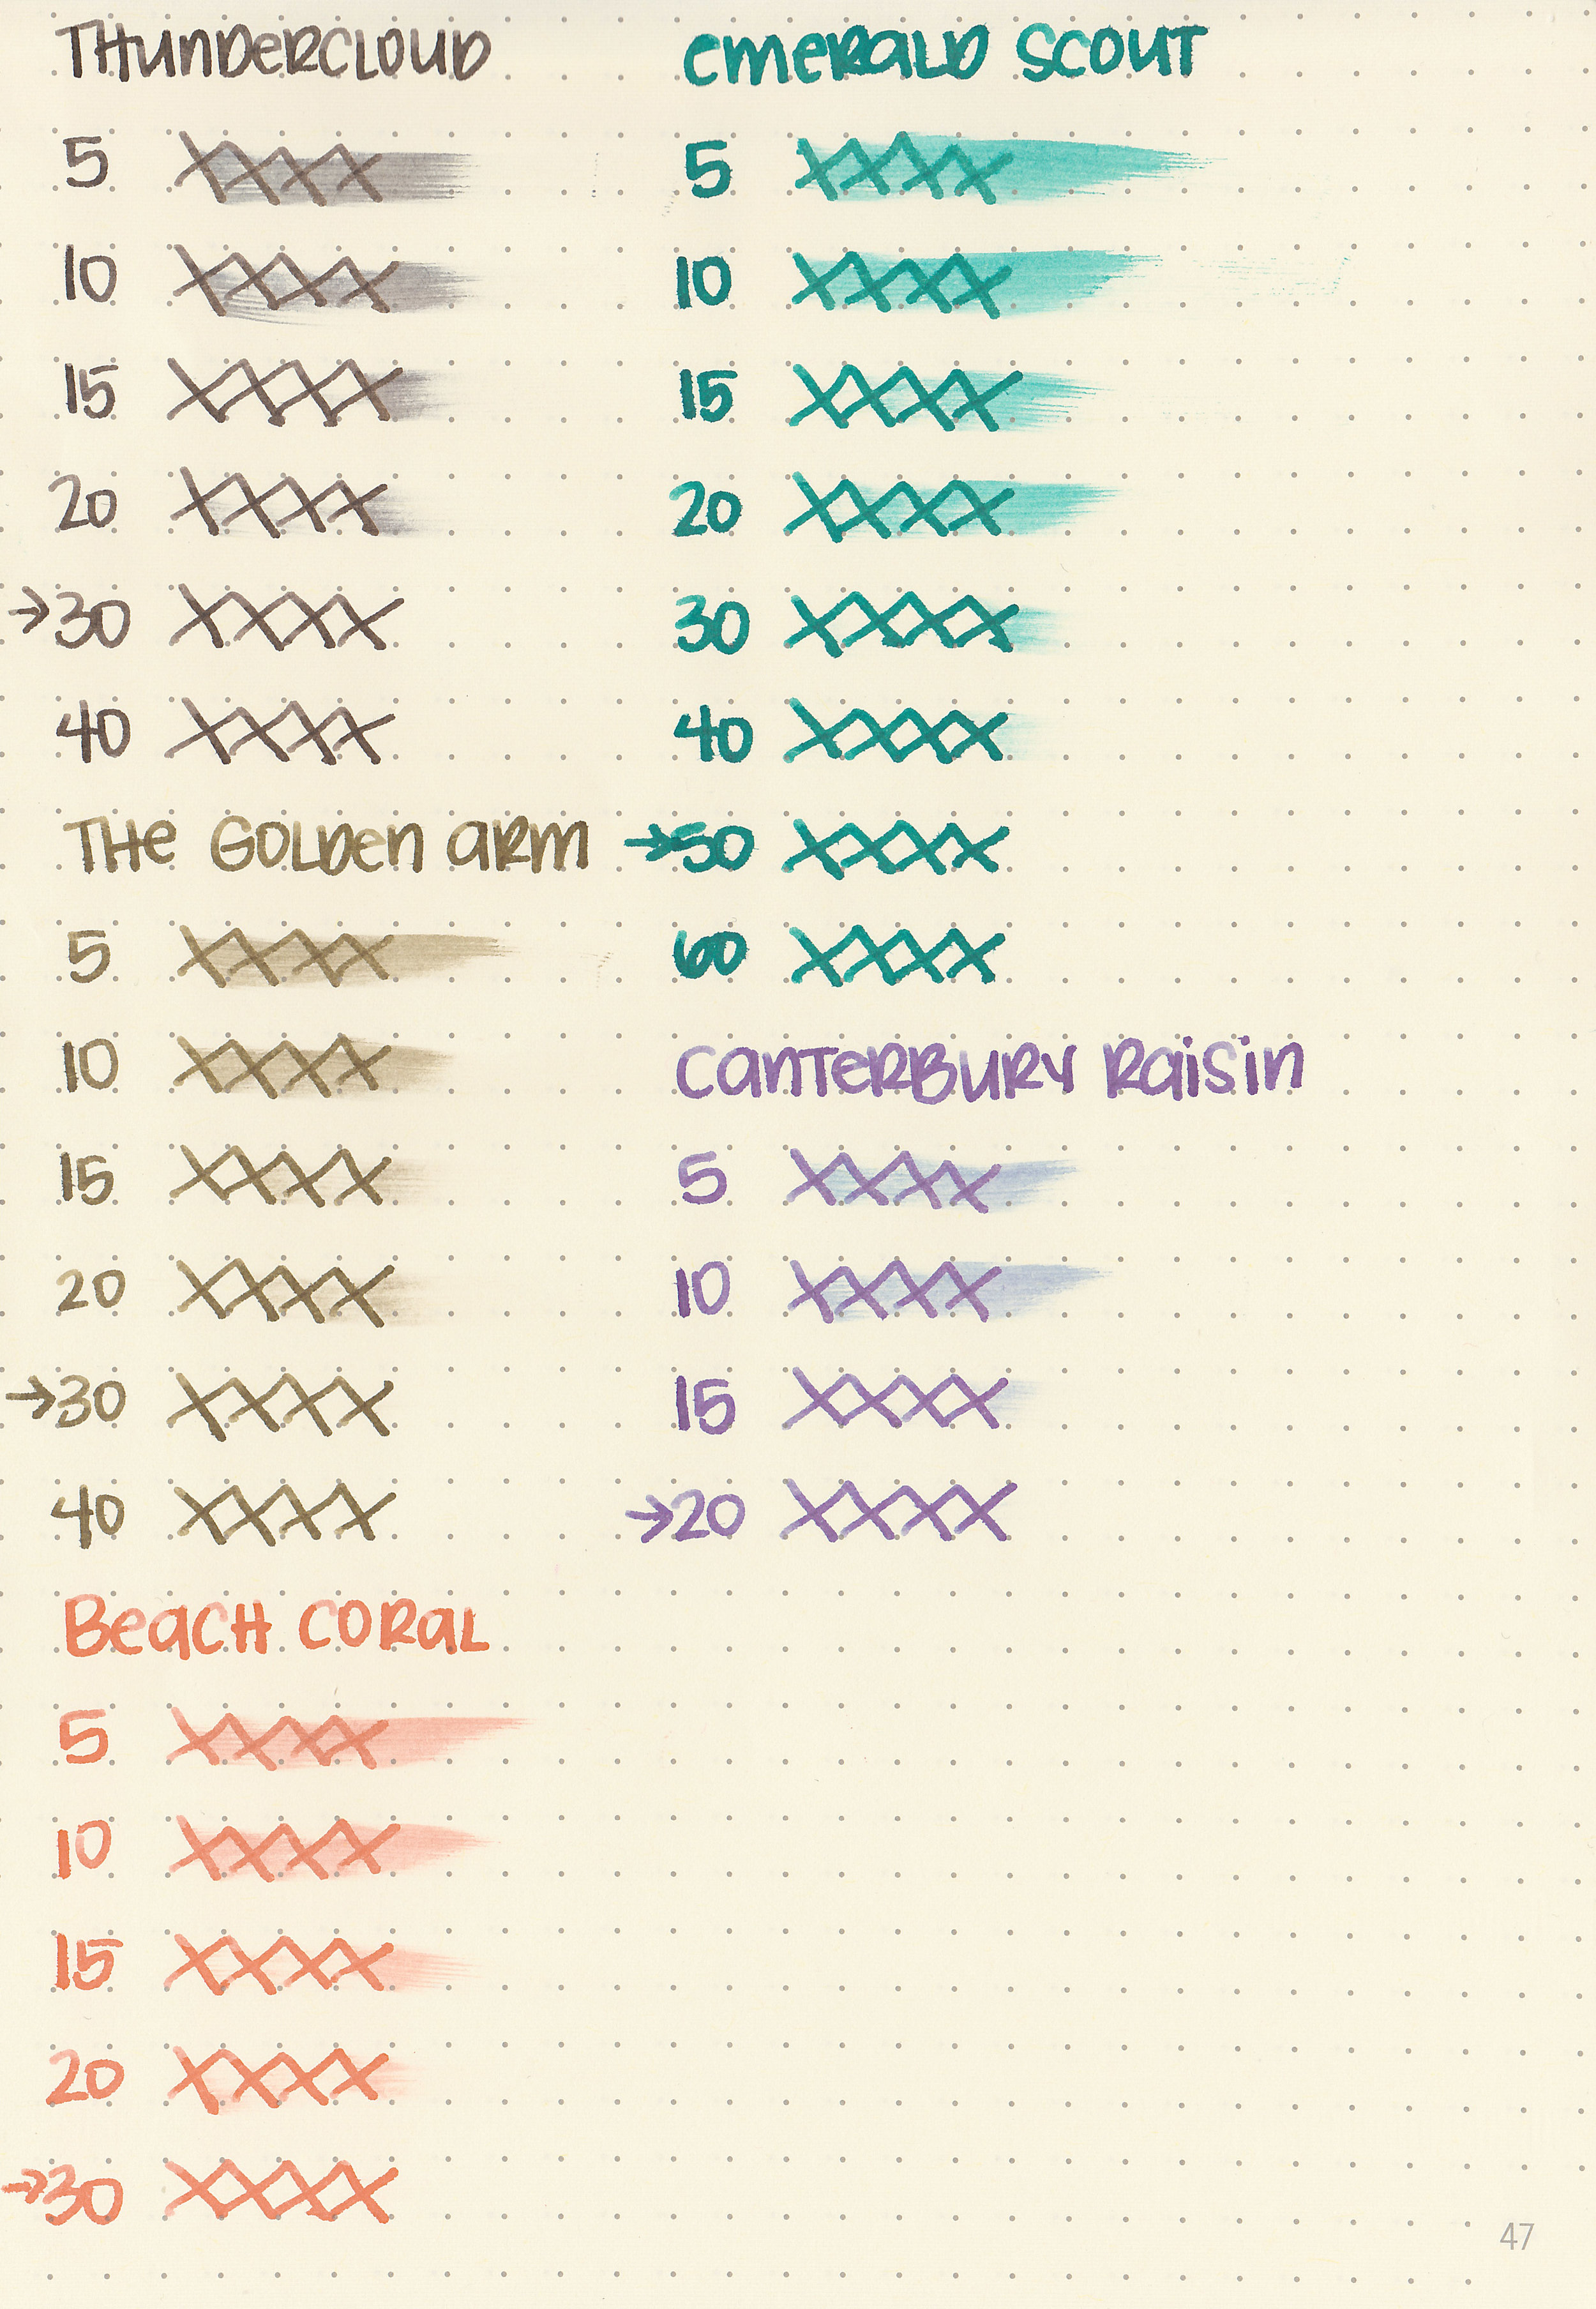 THUNDERCLOUD
5 XXXX
10 XXXX
15 XXXX
20 XXXX
→30 XXXX
40 XXXX
THE GOLDEN ARM
5 XXXX
10 XXXX
15 XXXX
20 XXXX
→30 XXXX
40 XXXX
BEACH CORAL
5 XXXX
10 XXXX
15 XXXX
20 XXXX
→30 XXXX
EMERALD SCOUT
5 XXXX
10 XXXX
15 XXXX
20 XXXX
30 XXXX
40 XXXX
→50 XXXX
60 XXXX
CANTERBURY RAISIN
5 XXXX
10 XXXX
15 XXXX
→20 XXXX
47